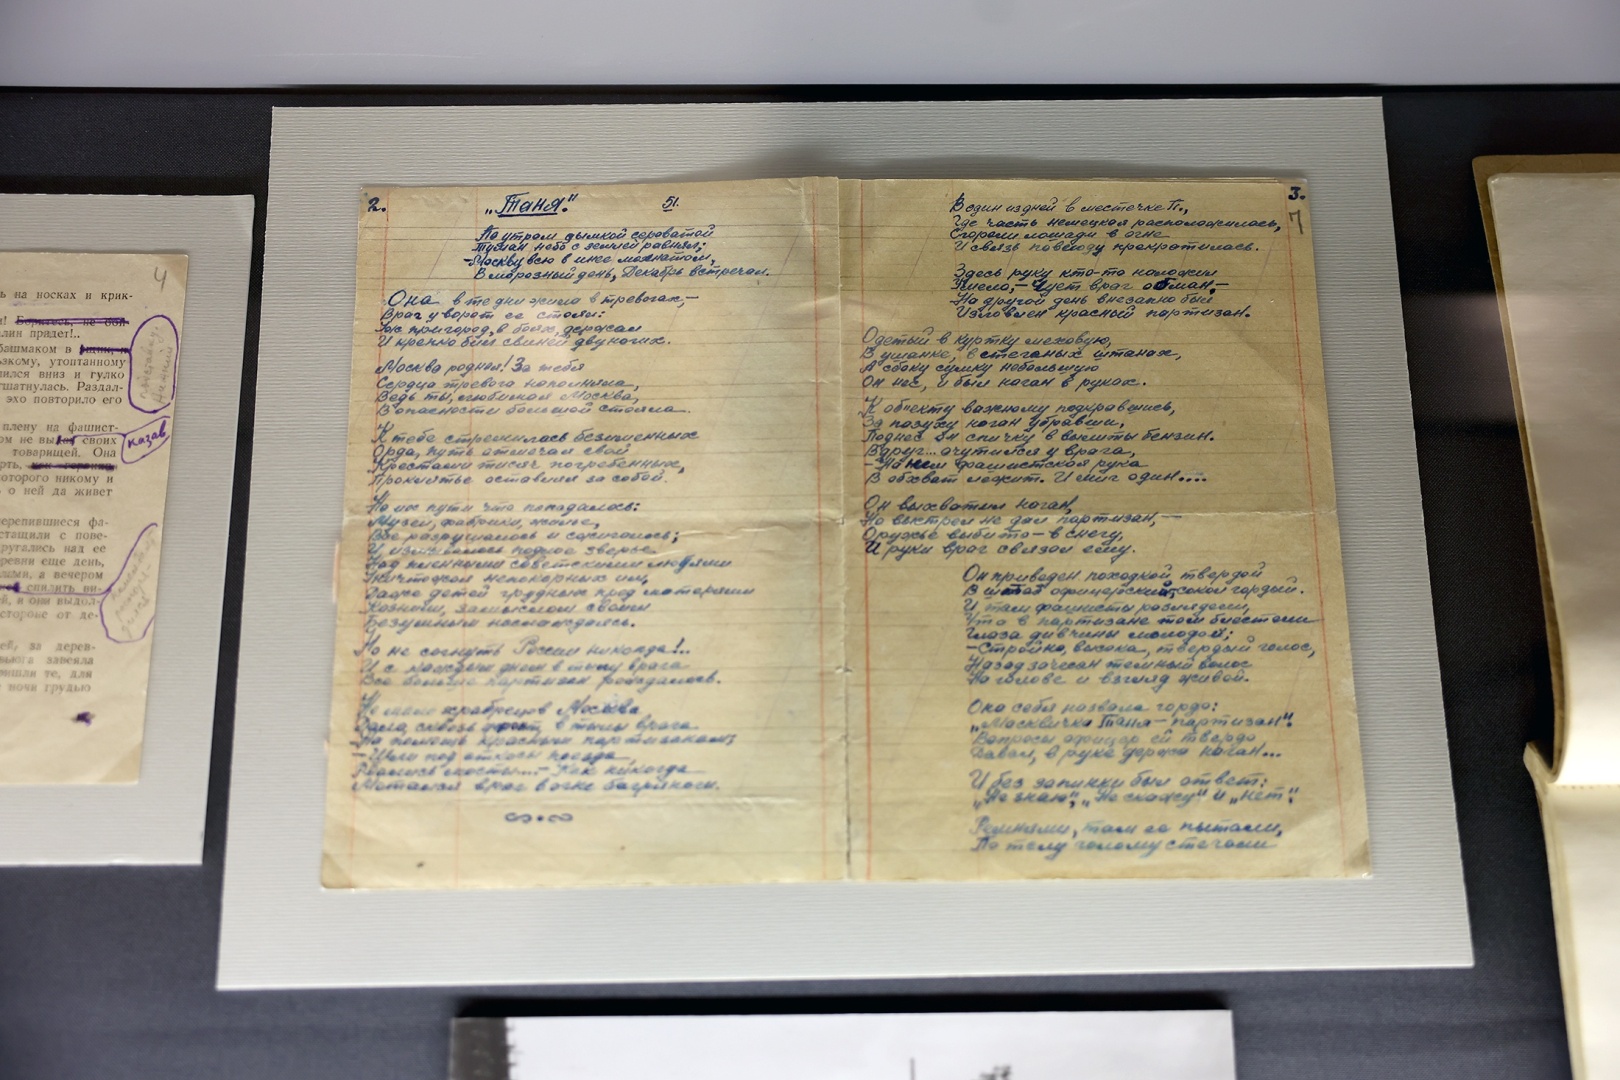 ь на носках и крик-
и! Боритесь, не бой-
алин придет!..
башмаком в
ьзкому, утоптанному
лился вниз и гулко
шатнулась. Раздал-
эхо повторило его
плену на фашист-
ом не вы своих
товарищей. Она
ерть,
которого никому и
о ней да живет
черепившиеся фа-
стащили с пове-
ругались над ее
еревни еще день,
а вечером
спилить ви-
ей, и они выдол-
стороне от де-
ей, за дерев-
вьюга завеяла
ишли те, для
ночи грудью
4
казав
2.
„Таня."
51.
По утрам дымкой сероватой
Туман небо с землей равнял;
-Москву всю в инее мохнатом,
В морозный день, Декабрь встречал.
Она в те дни жила в тревогах,—
Враг у ворот ее стоял:
Уж пригород, в боях, держал
И крепко бил свиней двуногих.
Москва родная! За тебя
Сердца тревога наполняла,
Ведь ты, любимая Москва,
В опасности большой стояла.
К тебе стремилась безземенных
Орда, путь отмечал свой
Крестами тысяч погребенных,
Проклятье оставляя за собой.
На их пути что попадалось:
Музеи, фабрики, жилье,
Все разрушалось и сжигалось;
И издевалось подлое зверье
Над пленными советскими людьми
Уничтожая непокорных им,
Даже детей грудных пред матерями
Казнили, замыслом своим
Безумным наслаждаясь.
Но не согнуть России никогда!..
И с каждым днем в тылу врага
Все больше партизан рождалось.
Не мало храбрецов Москва
Дала сквозь фронт, в тылы врага
На помощь красным партизанам;
Шли под откосы поезда
Рвались мосты...— Как никогда
Метался враг в огне багряном.
3.
7
В один из дней в местечке П.,
Где часть немецкая расположилась,
Сгорели лошади в огне
И связь повсюду прекратилась.
Здесь руку кто-то наложил
Умело,— Чует враг обман—
На другой день внезапно был
Изловлен красный партизан.
Одетый в куртку меховую,
В ушанке, в стеганых штанах,
А сбоку сумку небольшую
Он нес, и был наган в руках.
К об'екту важному подкравшись,
За пазуху наган убравши,
Поднес он спичку в вылитый бензин.
Вдруг... очутился у врага,
-На нем фашистская рука
В обхват лежит. И миг один....
Он выхватил наган,
Но выстрел не дал партизан,—
Оружье выбито— в снегу,
И руки враг связал ему.
Он приведен походкой твердой
В штаб офицерский, такой гордый.
И там фашисты разглядели,
Что в партизане том блестели
Глаза дивчины молодой;
-Стройна, высока, твердый голос,
Назад зачесан темный волос
На голове и взгляд живой.
Она себя назвала гордо:
„Москвичка Таня— партизан".
Вопросы офицер ей твердо
Давал, в руке держа наган...
И без запинки был ответ:
„Не знаю", „Не скажу" и „Нет".
Ремнями, там ее пытали,
По телу голому стегали